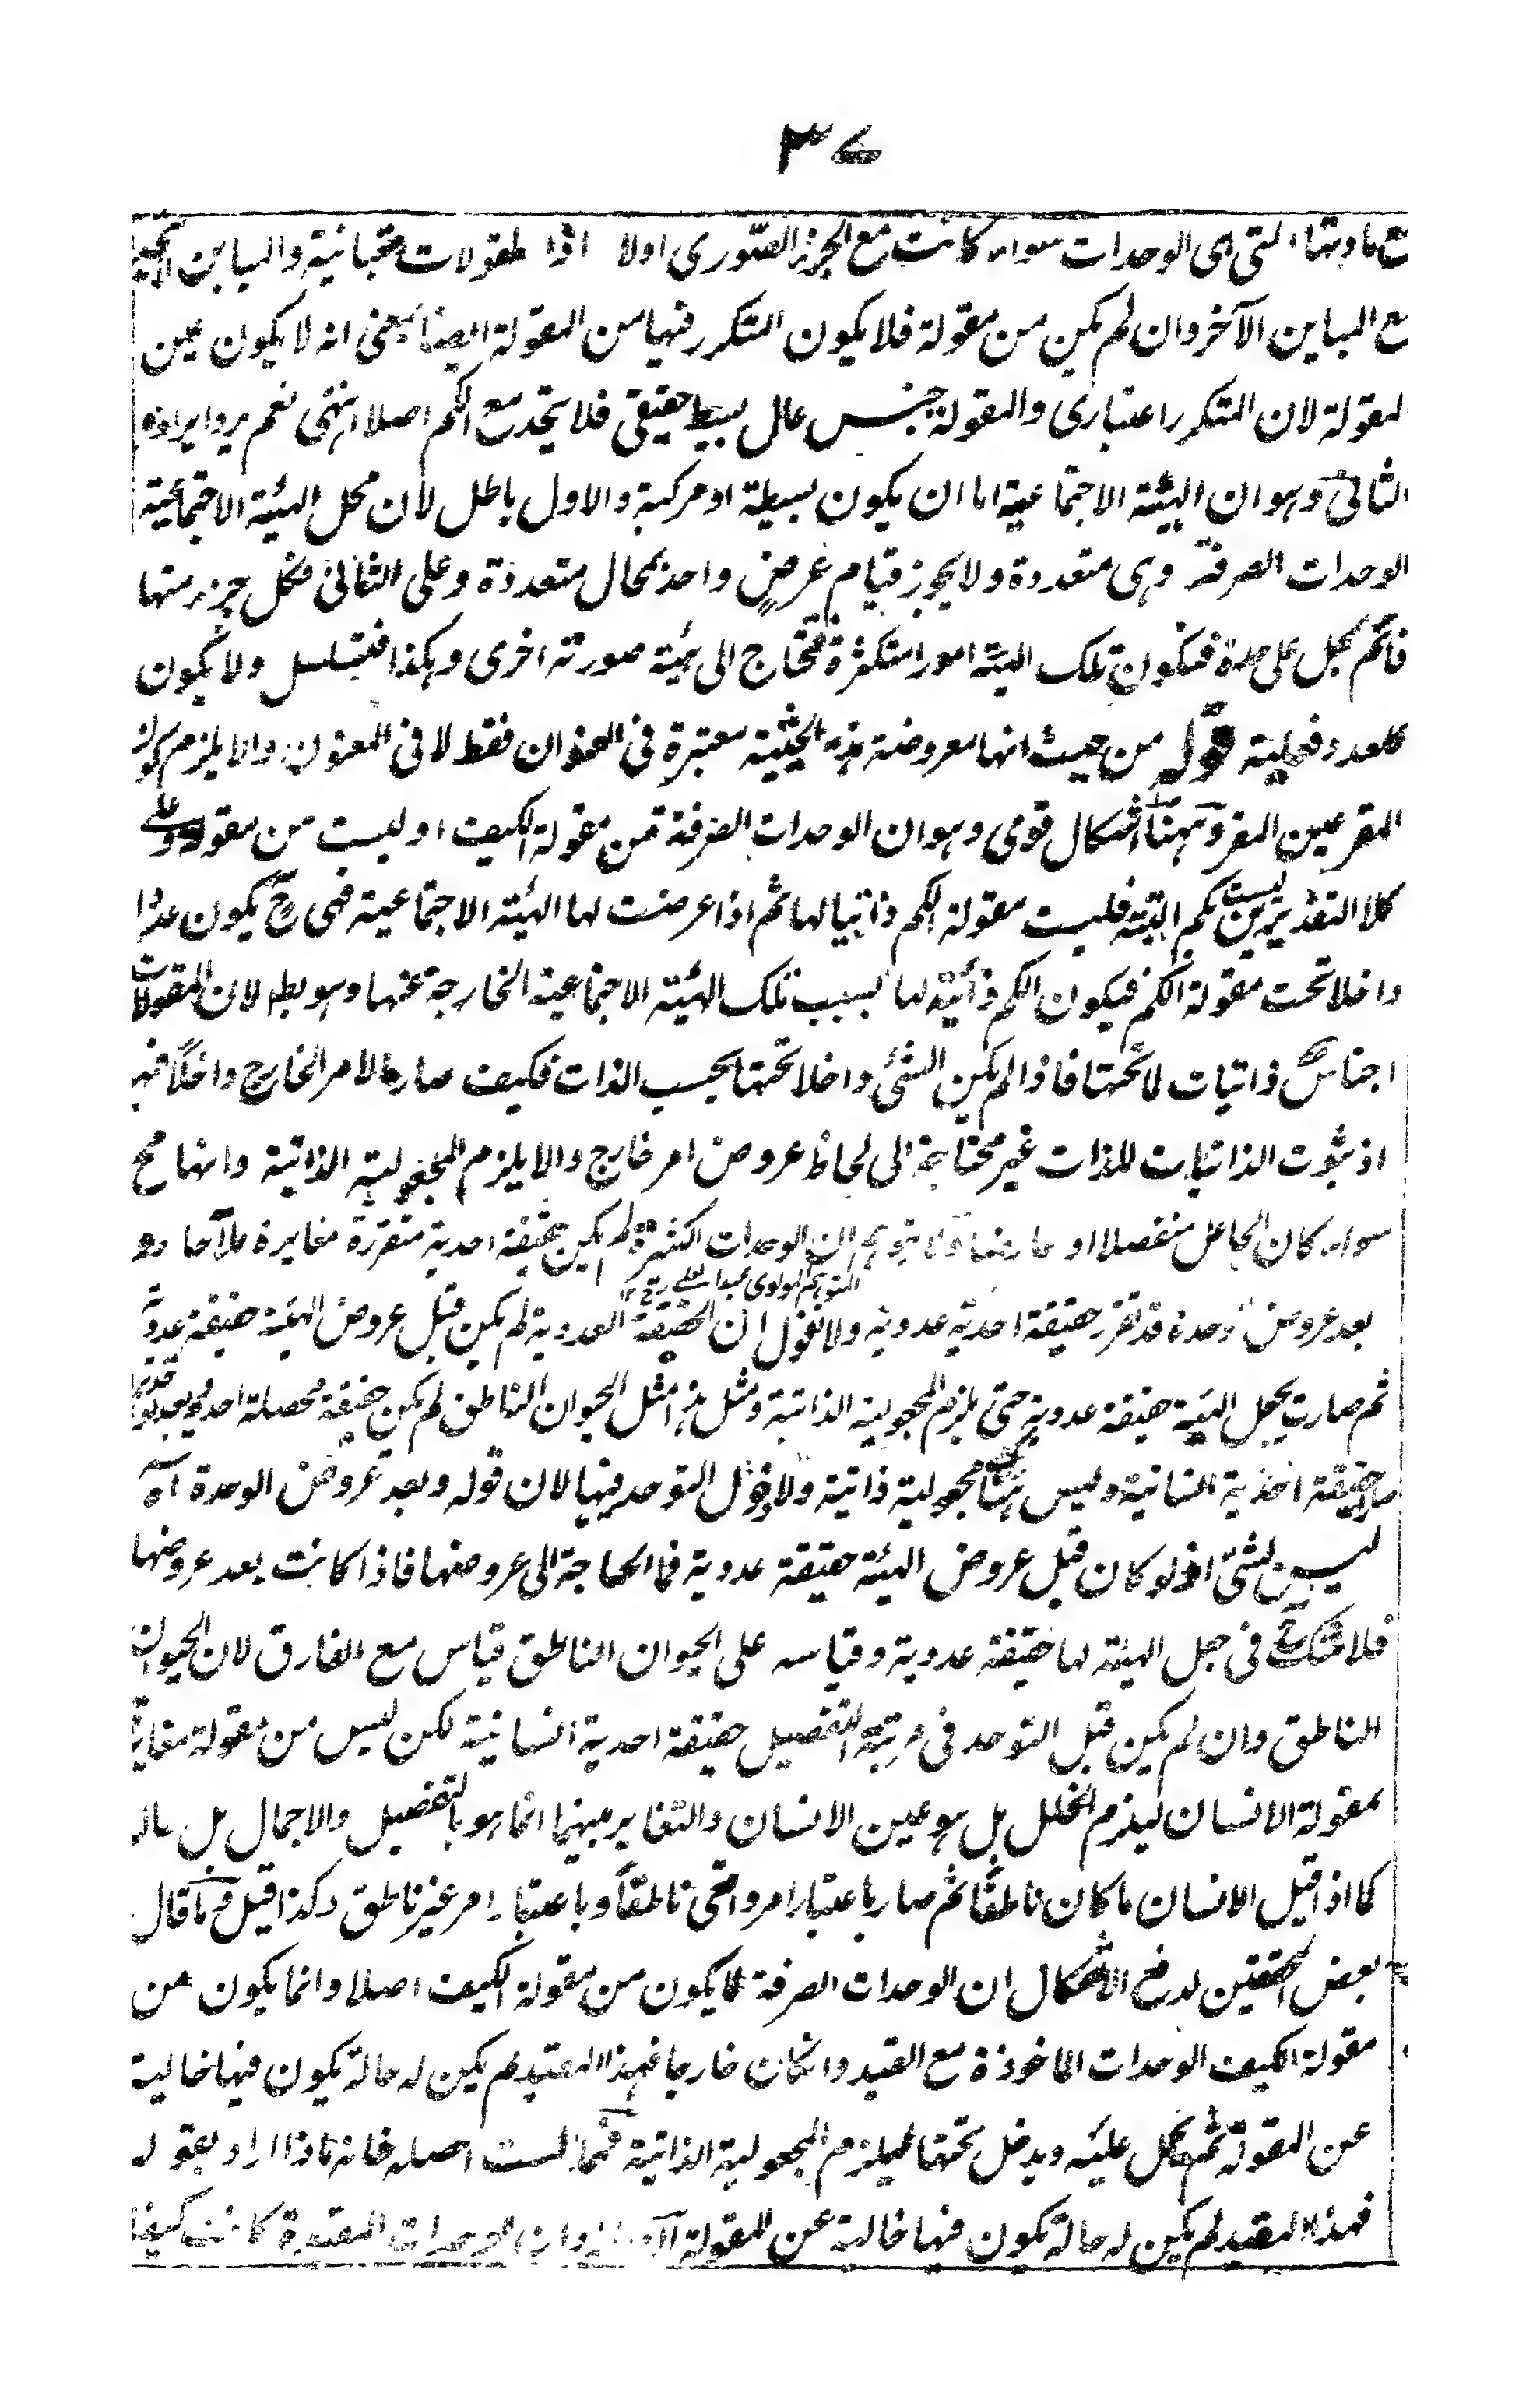 ٣٧
مع مادتها التى هى الوحدات سواء كانت مع الجزء الصورى اولا اذا المقولات متباينة والمباين
مع المباين الآخر وان لم يكن من مقولة فلا يكون المتكرر فيها من المقولة ايضا بمعنى انه لا يكون عين
المقولة لان المتكرر اعتبارى والمقولة جنس عال بسيط حقيقى فلا يتحد مع الكم اصلا انتهى نعم يرد ايراده
الثانى وهو ان الهيئة الاجتماعية اما ان يكون بسيطة او مركبة والاول باطل لان محل الهيئة الاجتماعية
الوحدات الصرفة وهى متعددة ولا يجوز قيام عرض واحد بمحال متعددة وعلى الثانى فكل جزء منها
قائم بمحل على حدة فتكون تلك الهيئة امورا متكثرة فتحتاج الى هيئة صورته اخرى وهكذا فتسلسل ولا يكون
للعدد فعلية قوله من حيث انها معروضة هذه الحيثية معتبرة فى العنوان فقط لا فى المعنون والا يلزم
المقر عين المفر وههنا اشكال قوى وهو ان الوحدات الصرفة من مقولة الكيف او ليست من مقولة وعلى
كلا التقديرين ليست بكم البتة فليست مقولة الكم ذاتيا لها ثم اذا عرضت لها الهيئة الاجتماعية فهى ح يكون عددا
داخلا تحت مقولة الكم فيكون الكم ذاتية لها بسبب تلك الهيئة الاجتماعية الخارجة عنها وهو بط لان المقولات
اجناس ذاتيات لا تحتها فاذا لم يكن الشئ داخلا تحتها بحسب الذات فكيف صار بالامر الخارج داخلا فيه
اذ ثبوت الذاتيات للذات غير محتاجة الى لحاظ عروض امر خارج والا يلزم المجعولية الذاتية وانها مح
سواء كان الجاعل منفصلا او عارضا ولا يتوهم ان الوحدات الكثيرة لم يكن حقيقة احدية متقررة مغايرة للآحاد و
المتوهم المولوى عبد العلى رح
بعد عروض الوحدة قد تقرر حقيقة احدية عددية ولا نقول ان الحقيقة العددية لم يكن قبل عروض الهيئة حقيقة عددية
ثم صارت بجعل الهيئة حقيقة عددية حتى يلزم المجعولية الذاتية ومثل هذا مثل الحيوان الناطق لم يكن حقيقة محصلة احدية
حقيقة احدية انسانية وليس هنا مجعولية ذاتية ولا دخول التوحد فيها لان قوله وبعد عروض الوحدة آه
ليس بشئ اذ لو كان قبل عروض الهيئة حقيقة عددية فما الحاجة الى عروضها فاذا كانت بعد عروضها
فلا شك فى جعل الهيئة لها حقيقة عددية وقياسه على الحيوان الناطق قياس مع الفارق لان الحيوان
الناطق وان لم يكن قبل التوحد فى مرتبة التفصيل حقيقة احدية انسانية لكن ليس من مقولة مغايرة
لمقولة الانسان ليلزم الخلل بل هو عين الانسان والتغاير بينهما انما هو بالتفصيل والاجمال بل
كما اذا قيل الانسان ما كان ناطقا ثم صار باعتبار امر واقعى ناطقا وباعتبار امر غير ناطق وكذا قيل وما قال
بعض المحققين لدفع الاشكال ان الوحدات الصرفة لا يكون من مقولة الكيف اصلا وانما يكون من
مقولة الكيف الوحدات الماخوذة مع القيد وان كان خارجا فهذا المقيد لم يكن له حالة يكون فيها خالية
عن المقولة ثم يحمل عليه ويدخل تحتها ليلزم المجعولية الذاتية فمما لست احصله فانه ماذا اراد بقوله
فهذا المقيد لم يكن له حالة يكون فيها خالية عن المقولة ان الوحدات المقيدة كانت كيفا